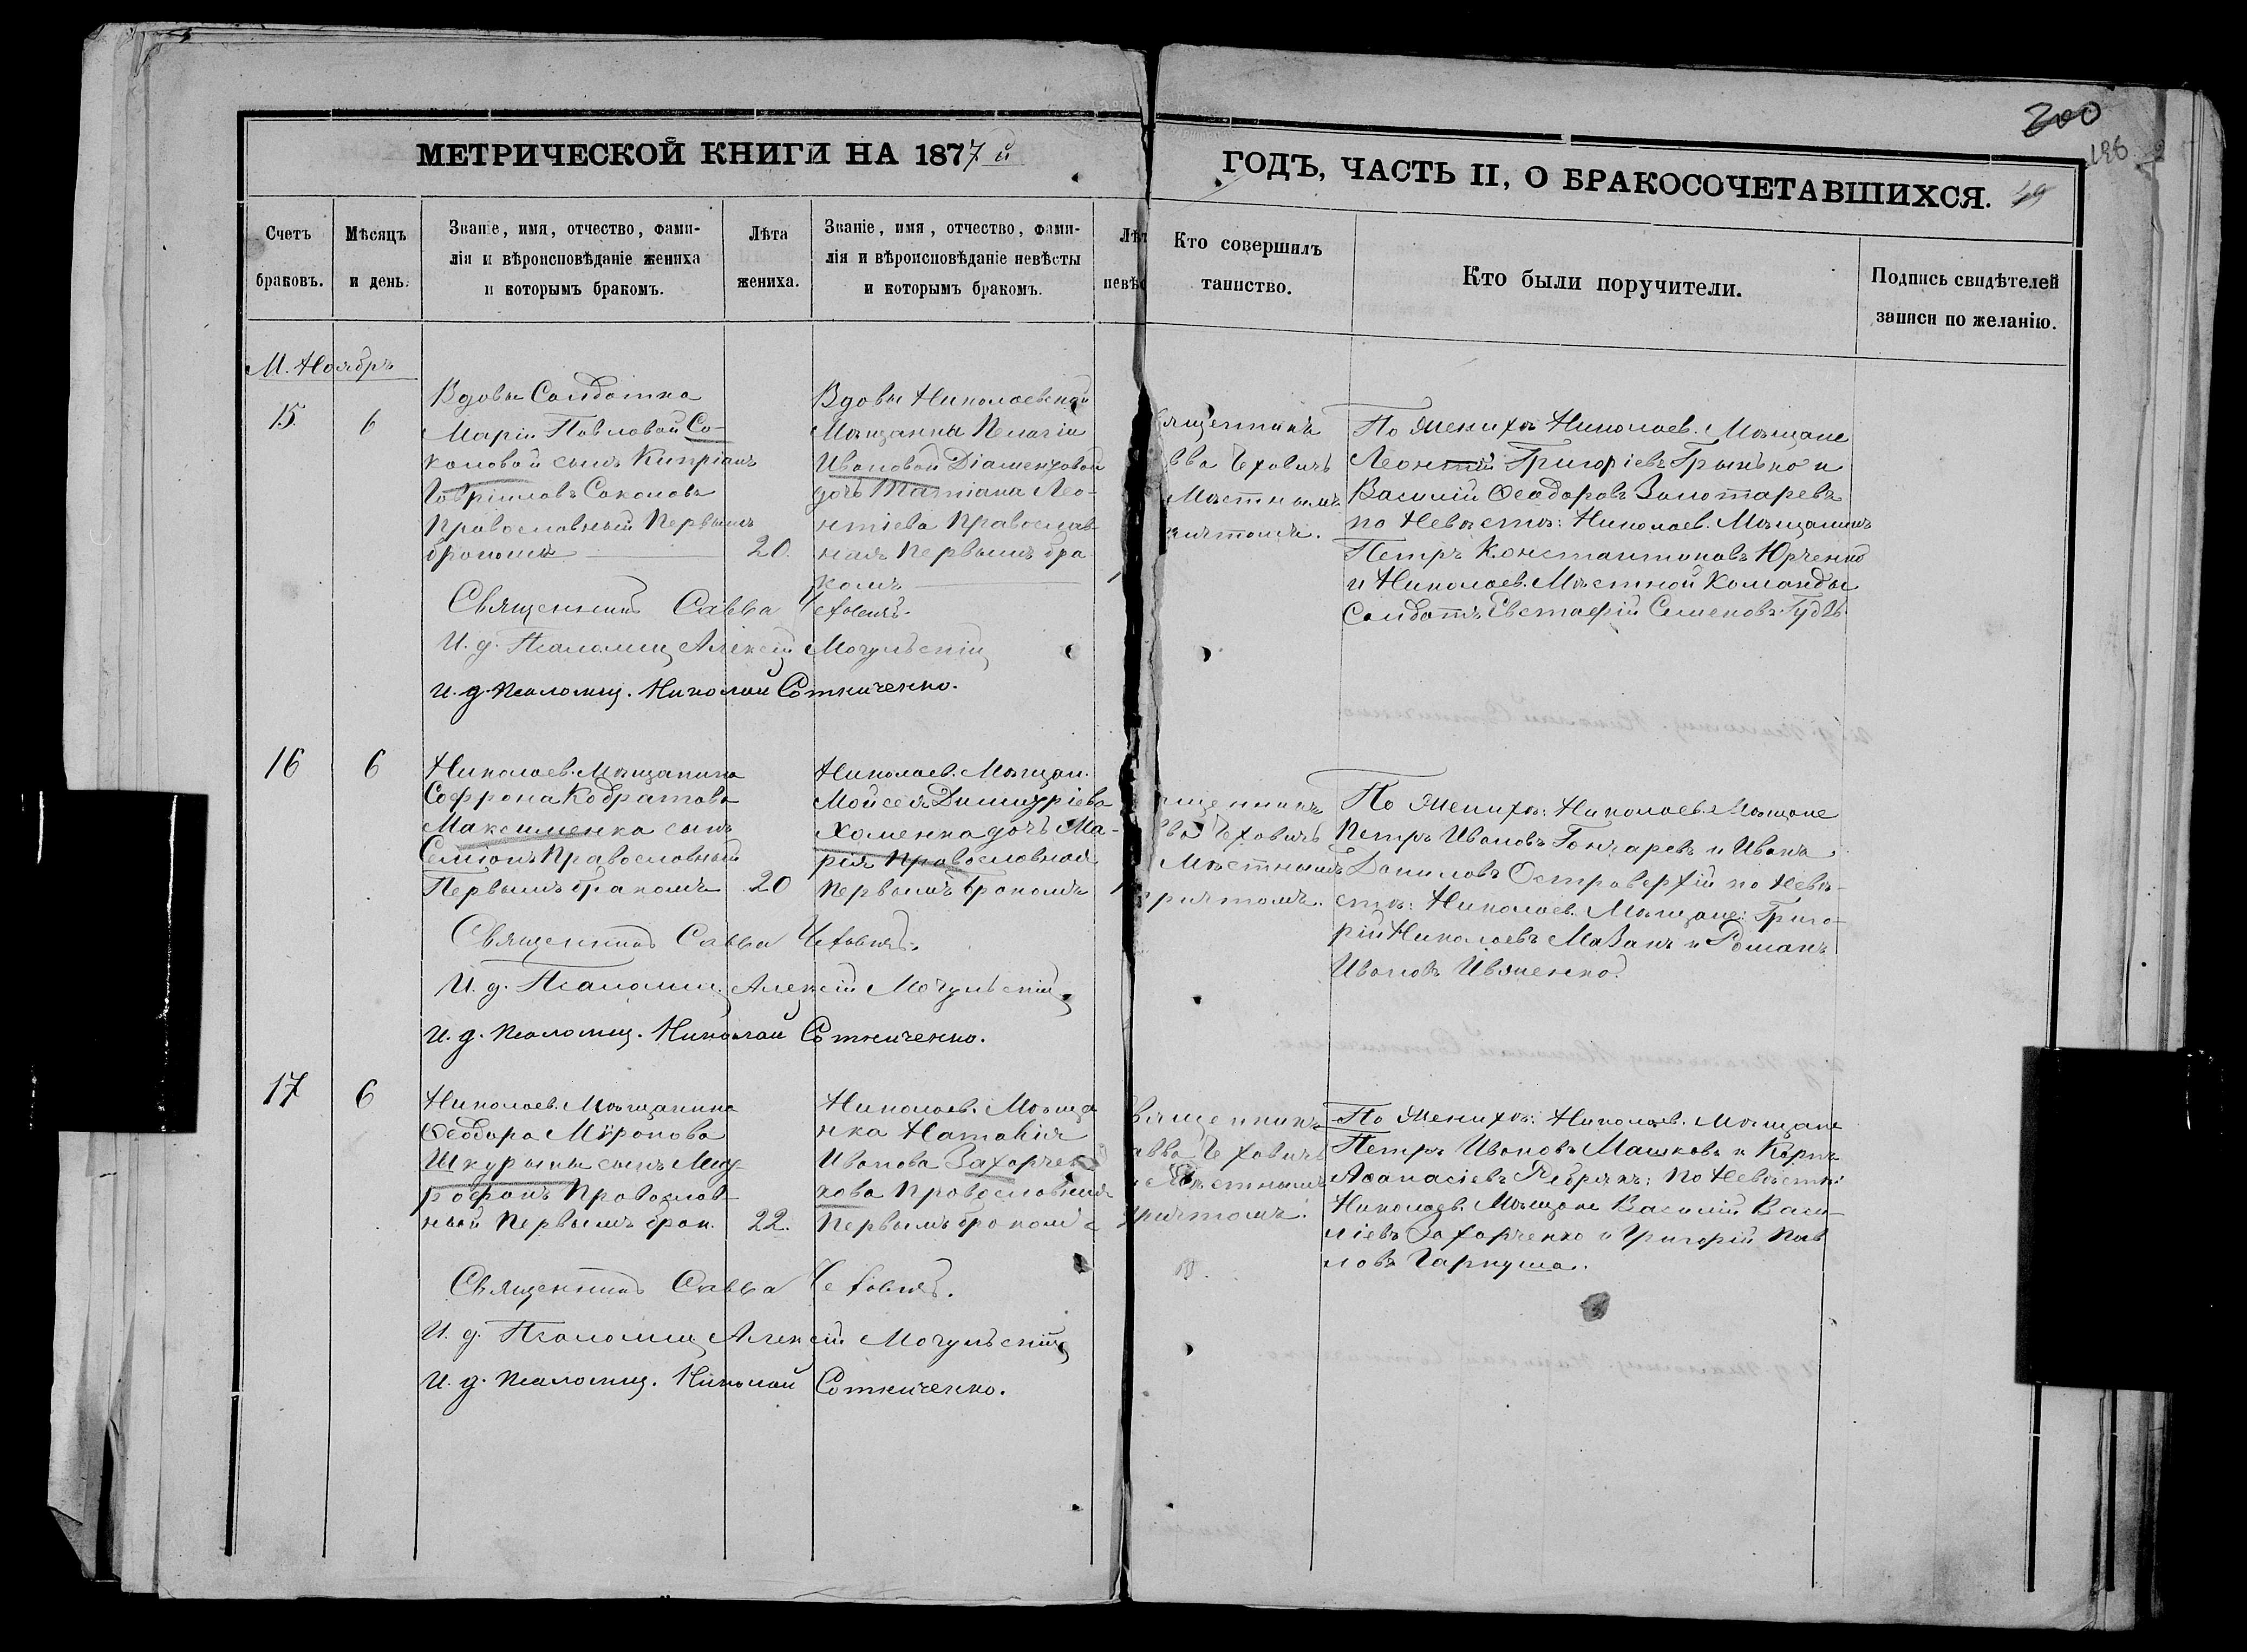 200
196
МЕТРИЧЕСКОЙ КНИГИ НА 1877й
ГОДЪ, ЧАСТЬ II, О БРАКОСОЧЕТАВШИХСЯ.
49
Счетъ браковъ.
Мѣсяцъ и день.
Званіе, имя, отчество, фами-
лія и вѣроисповѣданіе жениха
и которымъ бракомъ.
Лѣта жениха.
Званіе, имя, отчество, фами-
лія и вѣроисповѣданіе невѣсты
и которымъ бракомъ.
Лѣт
невѣс
Кто совершилъ
таинство.
Кто были поручители.
Подпись свидѣтелей
записи по желанію.
М. Ноябрь
15.
6
Вдовы Солдатка
Маріи Павловой Со-
коловой сынъ Кипріанъ
Гавріиловъ Соколовъ
Православный Первымъ
бракомъ
20.
Вдовы Николаевской
Мѣщанки Пелагіи
Ивановой
дочь Татіана Лео-
нтіева Православ-
ная Первымъ бра-
комъ
ященникъ
вва Чеховичъ
Мѣстнымъ
ичтомъ.
По Женихѣ Николаев. Мѣщане
Леонтій Григоріевъ Грынько и
Василій Ѳеодоровъ Золотаревъ
по Невѣстѣ: Николаев. Мѣщанинъ
Петръ Константиновъ Юрченко
и Николаев. Мѣстной Команды
Солдатъ Евстафій Семеновъ Гудзь
Священникъ Савва Чеховичъ.
И. д. Псаломщ. Алексій Могульскій
И. д. Псаломщ. Николай Сотниченко.
16
6
Николаев. Мѣщанина
Софрона Кодратова
Максименка сынъ
Семіонъ Православный
Первымъ бракомъ
20
Николаев. Мѣщан.
Мойсея Димитріева
Хоменка дочь Ма-
рія Православная
Первымъ бракомъ
ященникъ
вва Чеховичъ
Мѣстнымъ
причтомъ.
По Женихѣ: Николаев. Мѣщане
Петръ Ивановъ Гончаревъ и Иванъ
Даниловъ Островерхій по Невѣ-
стѣ: Николаев. Мѣщане: Григо-
рій Николаевъ Мазанъ и Романъ
Ивановъ Ивженко.
Священникъ Савва Чеховичъ.
И. д. Псаломщ. Алексій Могульскій
И. д. Псаломщ. Николай Сотниченко.
17
6
Николаев. Мѣщанина
Ѳеодора Мѵронова
Шкурыны сынъ Мит-
рофанъ Православ-
ный Первымъ брак.
22.
Николаев. Мѣща
нка Наталія
Иванова Захарчен
кова Православная
Первымъ бракомъ
вященникъ
авва Чеховичъ
Мѣстнымъ
причтомъ.
По Женихѣ: Николаев. Мѣщане
Петръ Ивановъ Машковъ и
Аѳанасіевъ : по Невѣстѣ:
Николаев. Мѣщане Василій Васи-
ліевъ Захарченко и Григорій Пав
ловъ Гаркуша.
Священникъ Савва Чеховичъ.
И. д. Псаломщ. Алексій Могульскій
И. д. Псаломщ. Николай Сотниченко.